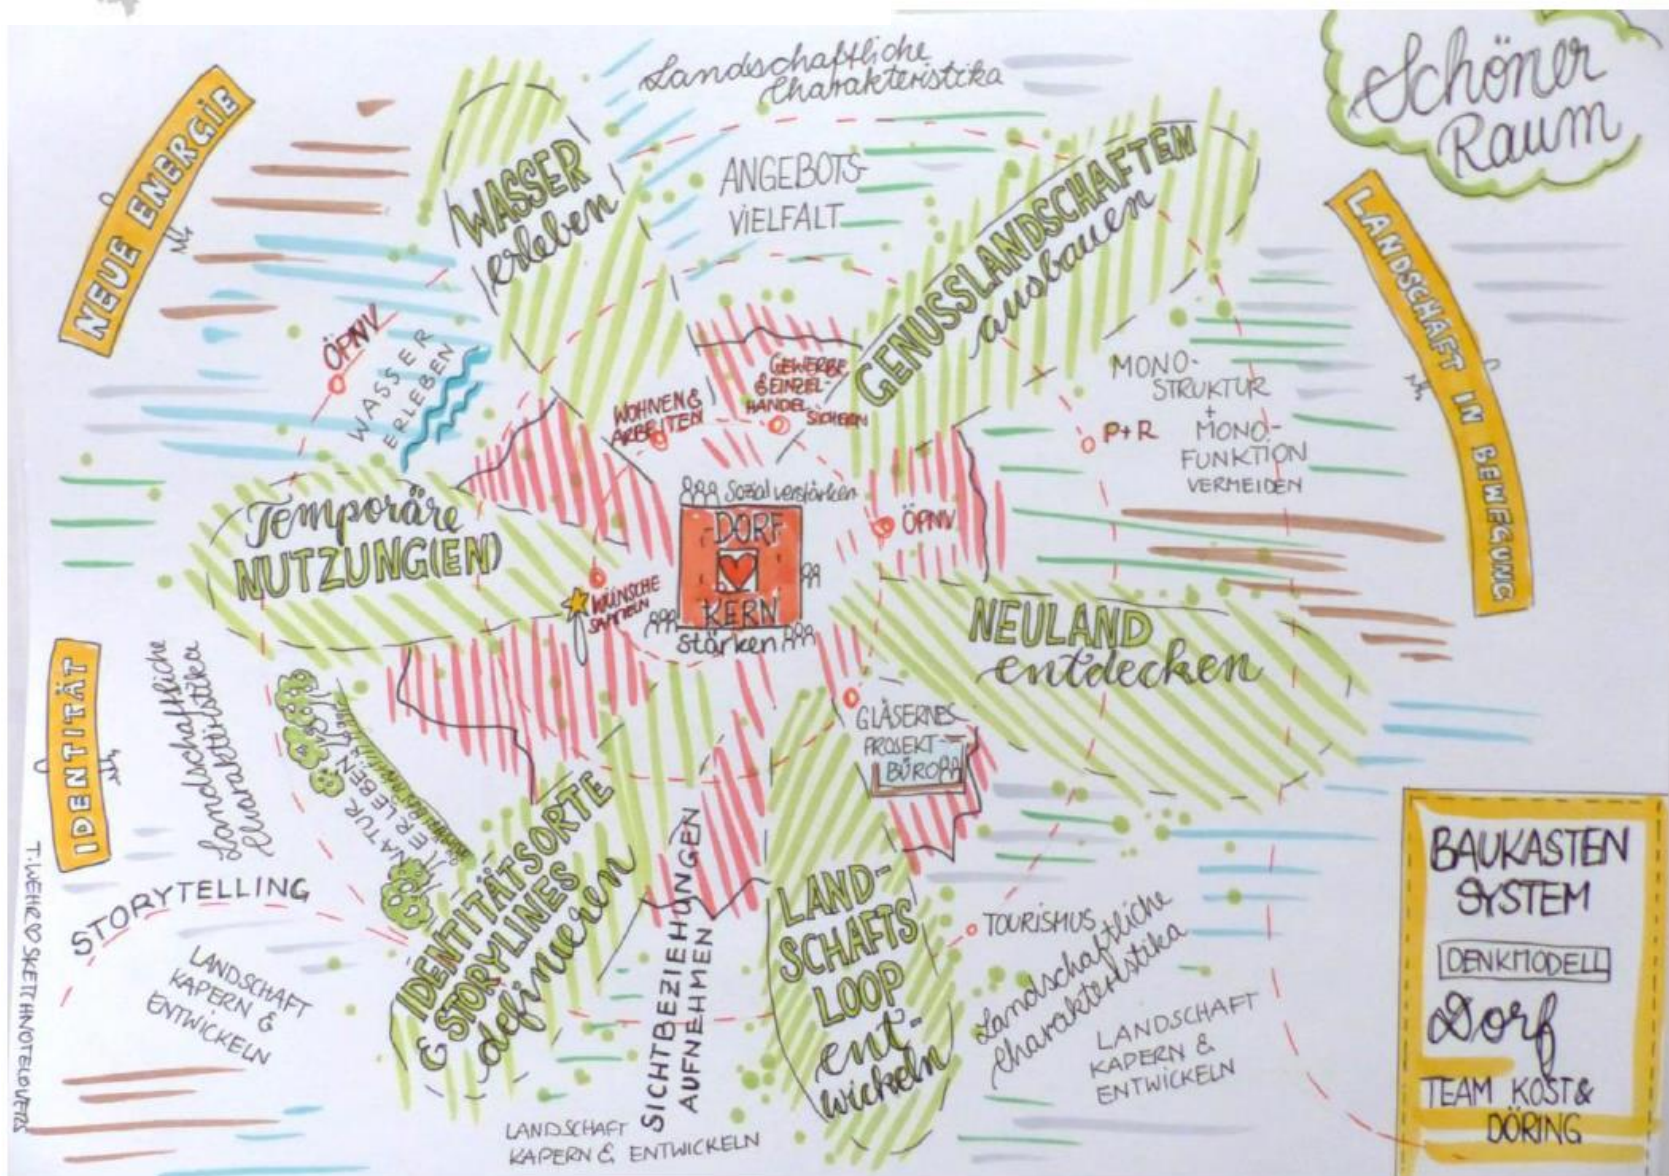 Landschaftliche
Charakteristika
Schöner
Raum
NEUE ENERGIE
WASSER
erleben
ANGEBOTS-
VIELFALT
GENUSSLANDSCHAFTEN
ausbauen
LANDSCHAFT IN BEWEGUNG
ÖPNV
WASSER
ERLEBEN
WOHNEN &
ARBEITEN
GEWERBE
& EINZEL-
HANDEL
SICHERN
MONO-
STRUKTUR
+
MONO-
FUNKTION
VERMEIDEN
P+R
Temporäre
NUTZUNG(EN)
Sozial verstärken
DORF
KERN
stärken
ÖPNV
WÜNSCHE
SAMMELN
NEULAND
entdecken
IDENTITÄT
Landschaftliche
Charakteristika
NATUR
ERLEBEN
GLÄSERNES
PROJEKT-
BÜRO
STORYTELLING
LANDSCHAFT
KAPERN &
ENTWICKELN
IDENTITÄTSORTE
& STORYLINES
definieren
SICHTBEZIEHUNGEN
AUFNEHMEN
LAND-
SCHAFTS
LOOP
ent-
wickeln
TOURISMUS
Landschaftliche
Charakteristika
LANDSCHAFT
KAPERN &
ENTWICKELN
LANDSCHAFT
KAPERN & ENTWICKELN
BAUKASTEN
SYSTEM
DENKMODELL
Dorf
TEAM KOST &
DÖRING
T.WEHR SKETCHNOTELOVERS